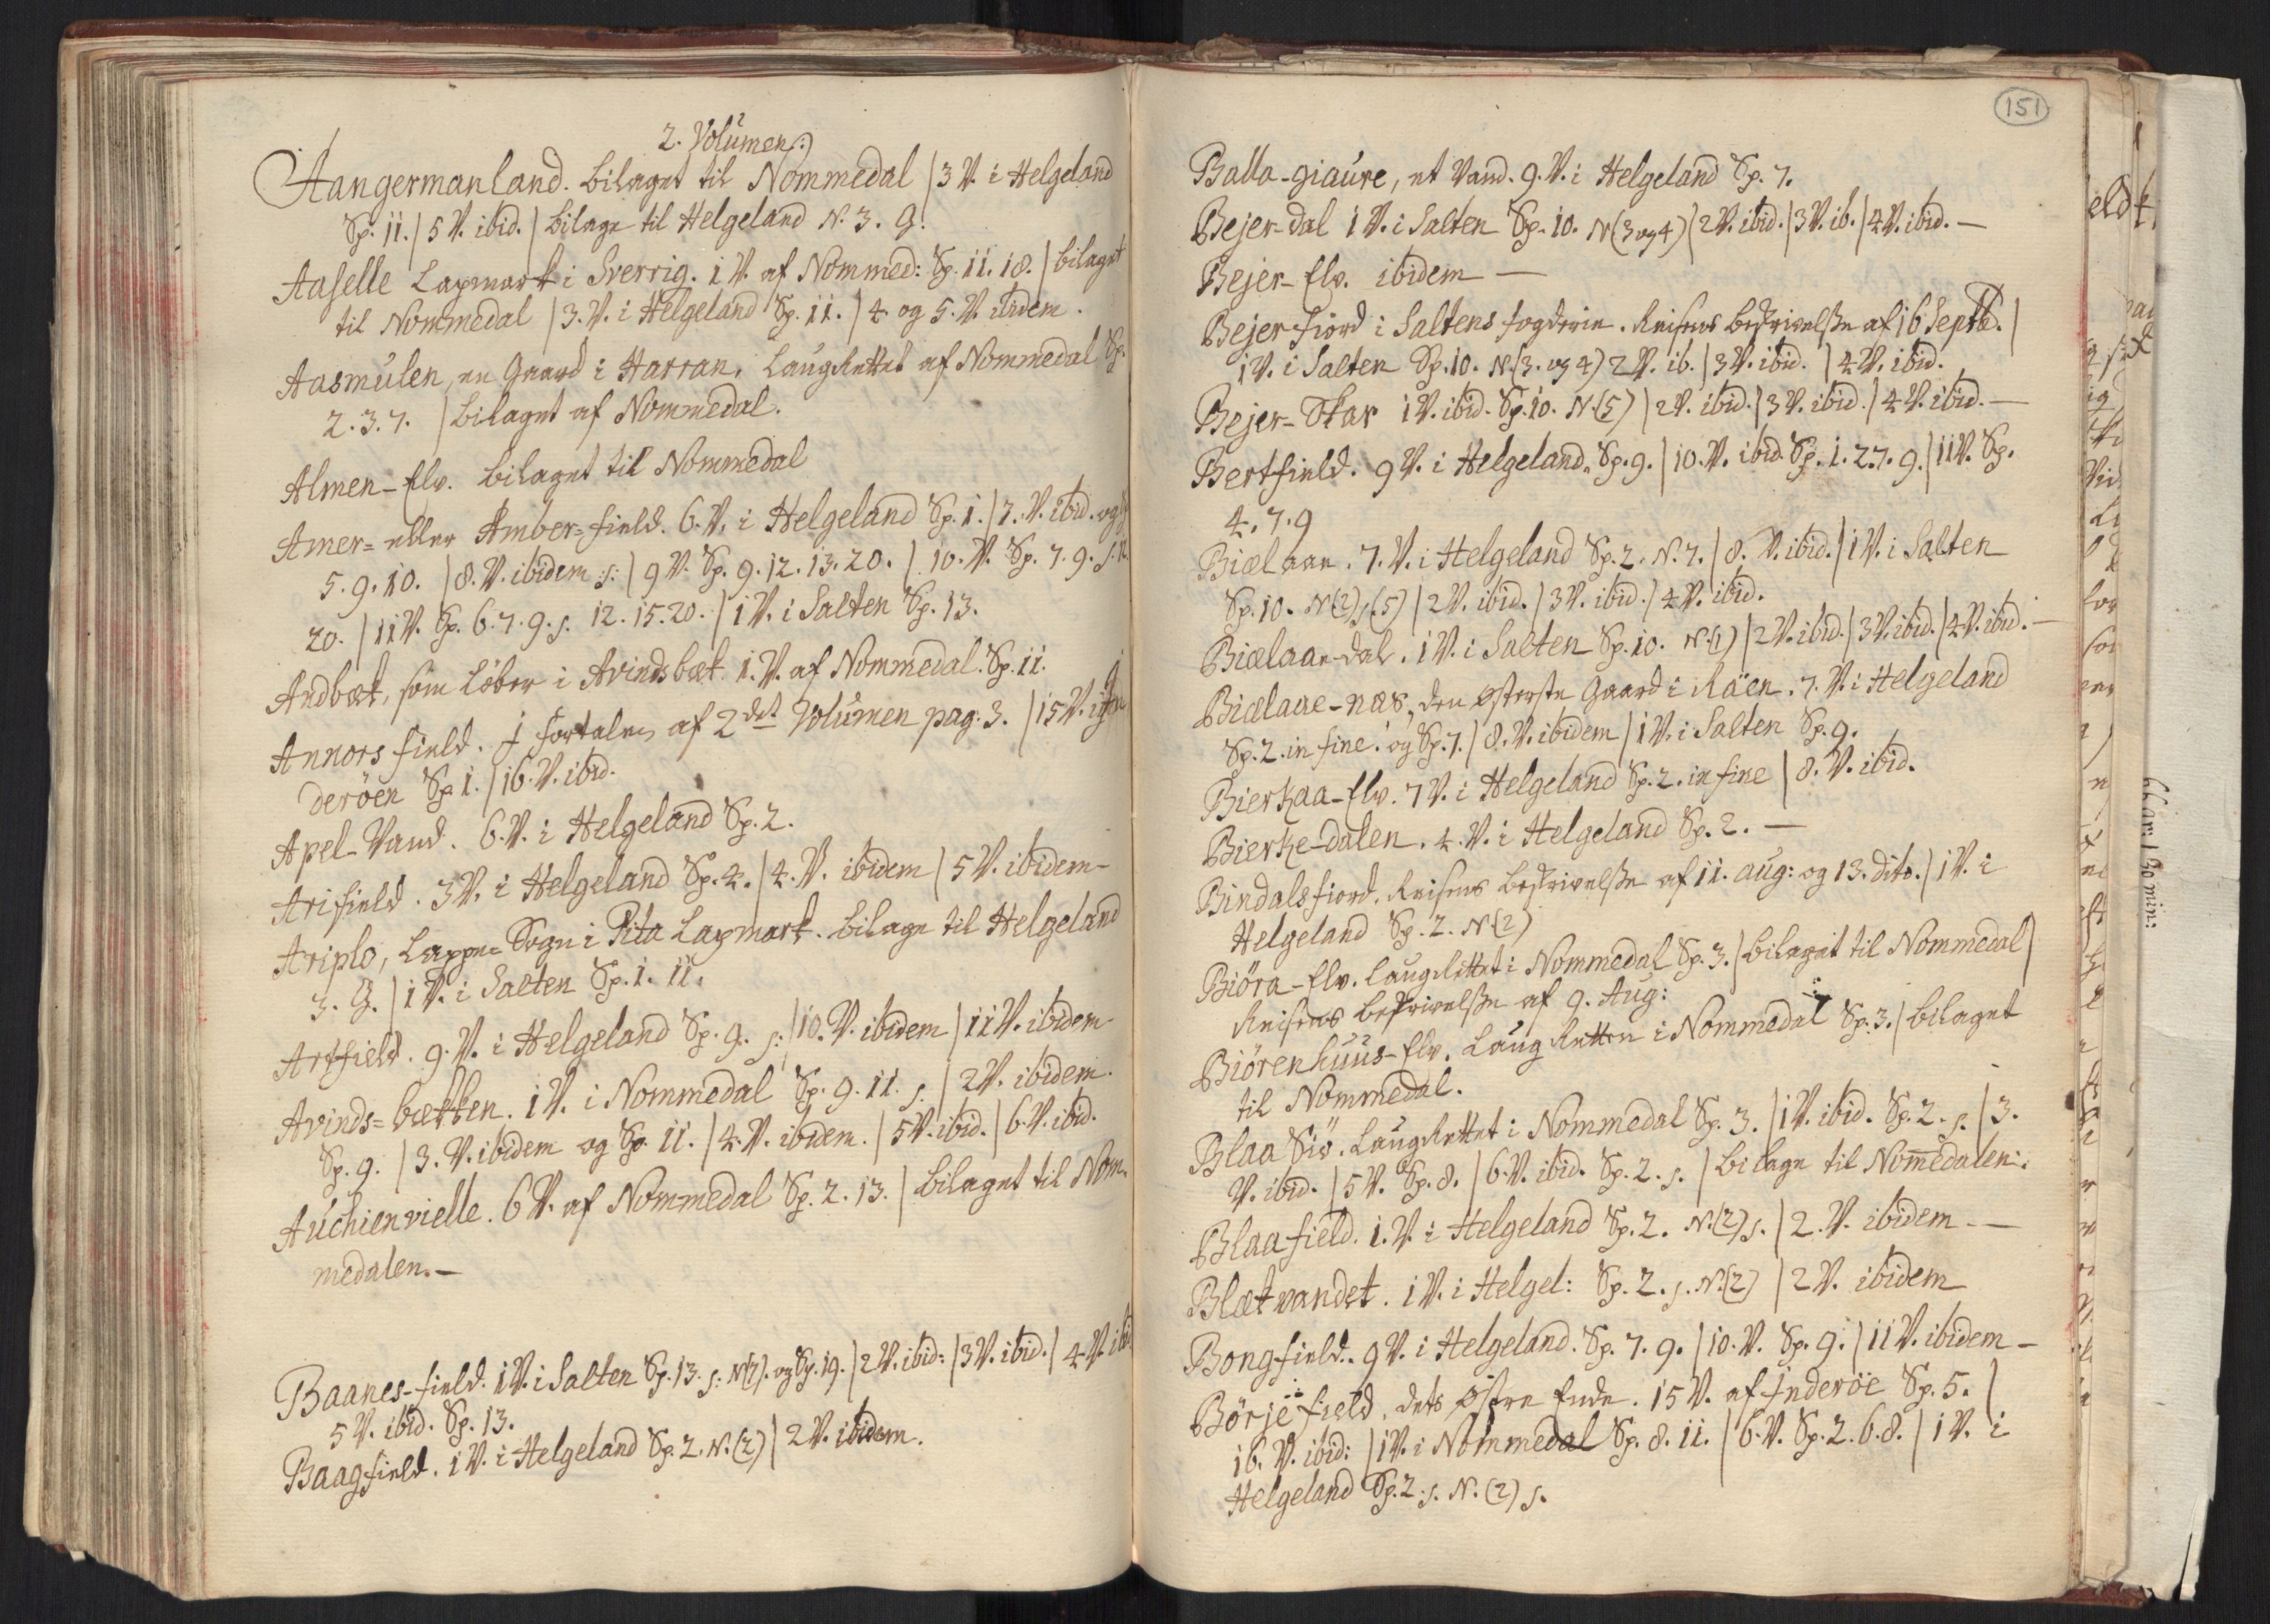 2. Volumen.
Aangermanland. bilaget til Nommedal | 3 V. i Helgeland
Sp. 11. | 5 V. ibid. | bilage til Helgeland N. 3. G.
Aaselle Lapmark i Sverrig. 1 V. af Nommed: Sp. 11. 18. | bilaget
til Nommedal | 3. V. i Helgeland Sp. 11. | 4. og 5. V. ibidem.
Aasmulen, en Gaard i Harran, LaugRettet af Nommedal Sp.
2. 3. 7. | bilaget af Nommedal.
Almen-Elv. bilaget til Nommedal
Amer= eller Amber=field. 6. V. i Helgeland Sp. 1. | 7. V. ibid. og
5. 9. 10. | 8. V. ibidem s: | 9 V. Sp. 9. 12. 13. 20. | 10. V. Sp. 7. 9. s.
20. | 11 V. Sp. 6. 7. 9. s. 12. 15. 20. | 1 V. i Salten Sp. 13.
Andbæk, som Löber i Avindsbæk. 1. V. af Nommedal. Sp. 11.
Annors field. I fortalen af 2det Volumen pag: 3. | 15 V. i
deröen Sp 1. | 16. V. ibid.
Apel-Vand. 6. V. i Helgeland Sp. 2.
Arifield. 3 V. i Helgeland Sp. 4. | 4. V. ibidem | 5 V. ibidem-
Ariplo, Lappe=Sogn i Pita Lapmark. bilage til Helgeland
3. G. | 1 V. i Salten Sp. 1. 11.
Artfield. 9. V. i Helgeland Sp. 9. s: | 10. V. ibidem | 11 V. ibidem
Avinds=bækken. 1 V. i Nommedal Sp. 9. 11. s. | 2 V. ibidem.
Sp. 9. | 3. V. ibidem og Sp. 11. | 4. V. ibidem. | 5 V. ibid. | 6. V. ibid.
Auchienvielle. 6 V. af Nommedal Sp. 2. 13. | bilaget til Nom-
medalen.-
Baanes-field. 1 V. i Salten Sp. 13. s: N(7). og Sp. 19. | 2 V. ibid: | 3 V. ibid. | 4. V. ibi
5 V. ibid. Sp. 13.
Baagfield. 1 V. i Helgeland Sp. 2. N. (2) | 2 V. ibidem.
151
Balla-giaure, et Vand. 9. V. i Helgeland Sp. 7.
Bejer-dal 1 V. i Salten Sp. 10. N (3 og 4) | 2 V. ibid. | 3 V. ib. | 4 V. ibid. -
Bejer-Elv. ibidem -
Bejer fiord i Saltens fogderie. Reisens beskrivelße af 16 Septb. |
1 V. i Salten Sp. 10. N. (3. og 4) 2 V. ib. | 3 V. ibid. | 4 V. ibid.
Bejer-Skar 1 V. ibid. Sp. 10. N. (5) | 2 V. ibid. | 3 V. ibid. | 4 V. ibid. -
Bertfield. 9 V. i Helgeland. Sp. 9. | 10. V. ibid. Sp. 1. 2. 7. 9. | 11 V. Sp.
4. 7. 9
Biælaae. 7. V. i Helgeland Sp. 2. N. 7. | 8. V. ibid. | 1 V. i Salten
Sp. 10. N (2), (5) | 2 V. ibid. | 3 V. ibid. | 4 V. ibid.
Biælaae-dal. 1 V. i Salten Sp. 10. N. (1) | 2 V. ibid. | 3 V. ibid. | 4 V. ibid. -
Biælaae-næs, den österste Gaard i Räen. 7. V. i Helgeland
Sp. 2. in fine. og Sp. 7. | 8. V. ibidem | 1 V. i Salten Sp. 9.
Bierkaa-Elv. 7 V. i Helgeland Sp. 2. in fine | 8. V. ibid.
Bierke-dalen. 4. V. i Helgeland Sp. 2. -
Bindalsfiord. Reisens beskrivelße af 11. aug: og 13. dito. | 1 V. i
Helgeland Sp. 2. N (2)
Biöra-Elv. LaugRettet i Nommedal Sp. 3. | bilaget til Nommedal |
Reisens beskrivelße af 9. Aug:
Biörenhuus-Elv. LaugRetten i Nommedal Sp. 3. | bilaget
til Nommedal.
Blaa Siö. LaugRettet i Nommedal Sp. 3. | 1 V. ibid. Sp. 2. s. | 3.
V. ibid. | 5 V. Sp. 8. | 6. V. ibid. Sp. 2. s. | bilage til Nom̅edalen.
Blaafield. 1. V. i Helgeland Sp. 2. N. (2) s. | 2. V. ibidem.-
Blætvandet. 1 V. i Helgel: Sp. 2. s. N. (2) | 2 V. ibidem
Bongfield. 9 V. i Helgeland. Sp. 7. 9. | 10. V. Sp. 9. | 11 V. ibidem -
Börje field, dets östre Ende. 15 V. af Inderöe Sp. 5. |
16. V. ibid: | 1 V. i Nommedal Sp. 8. 11. | 6. V. Sp. 2. 6. 8. | 1 V. i
Helgeland Sp. 2. s. N. (2) s.